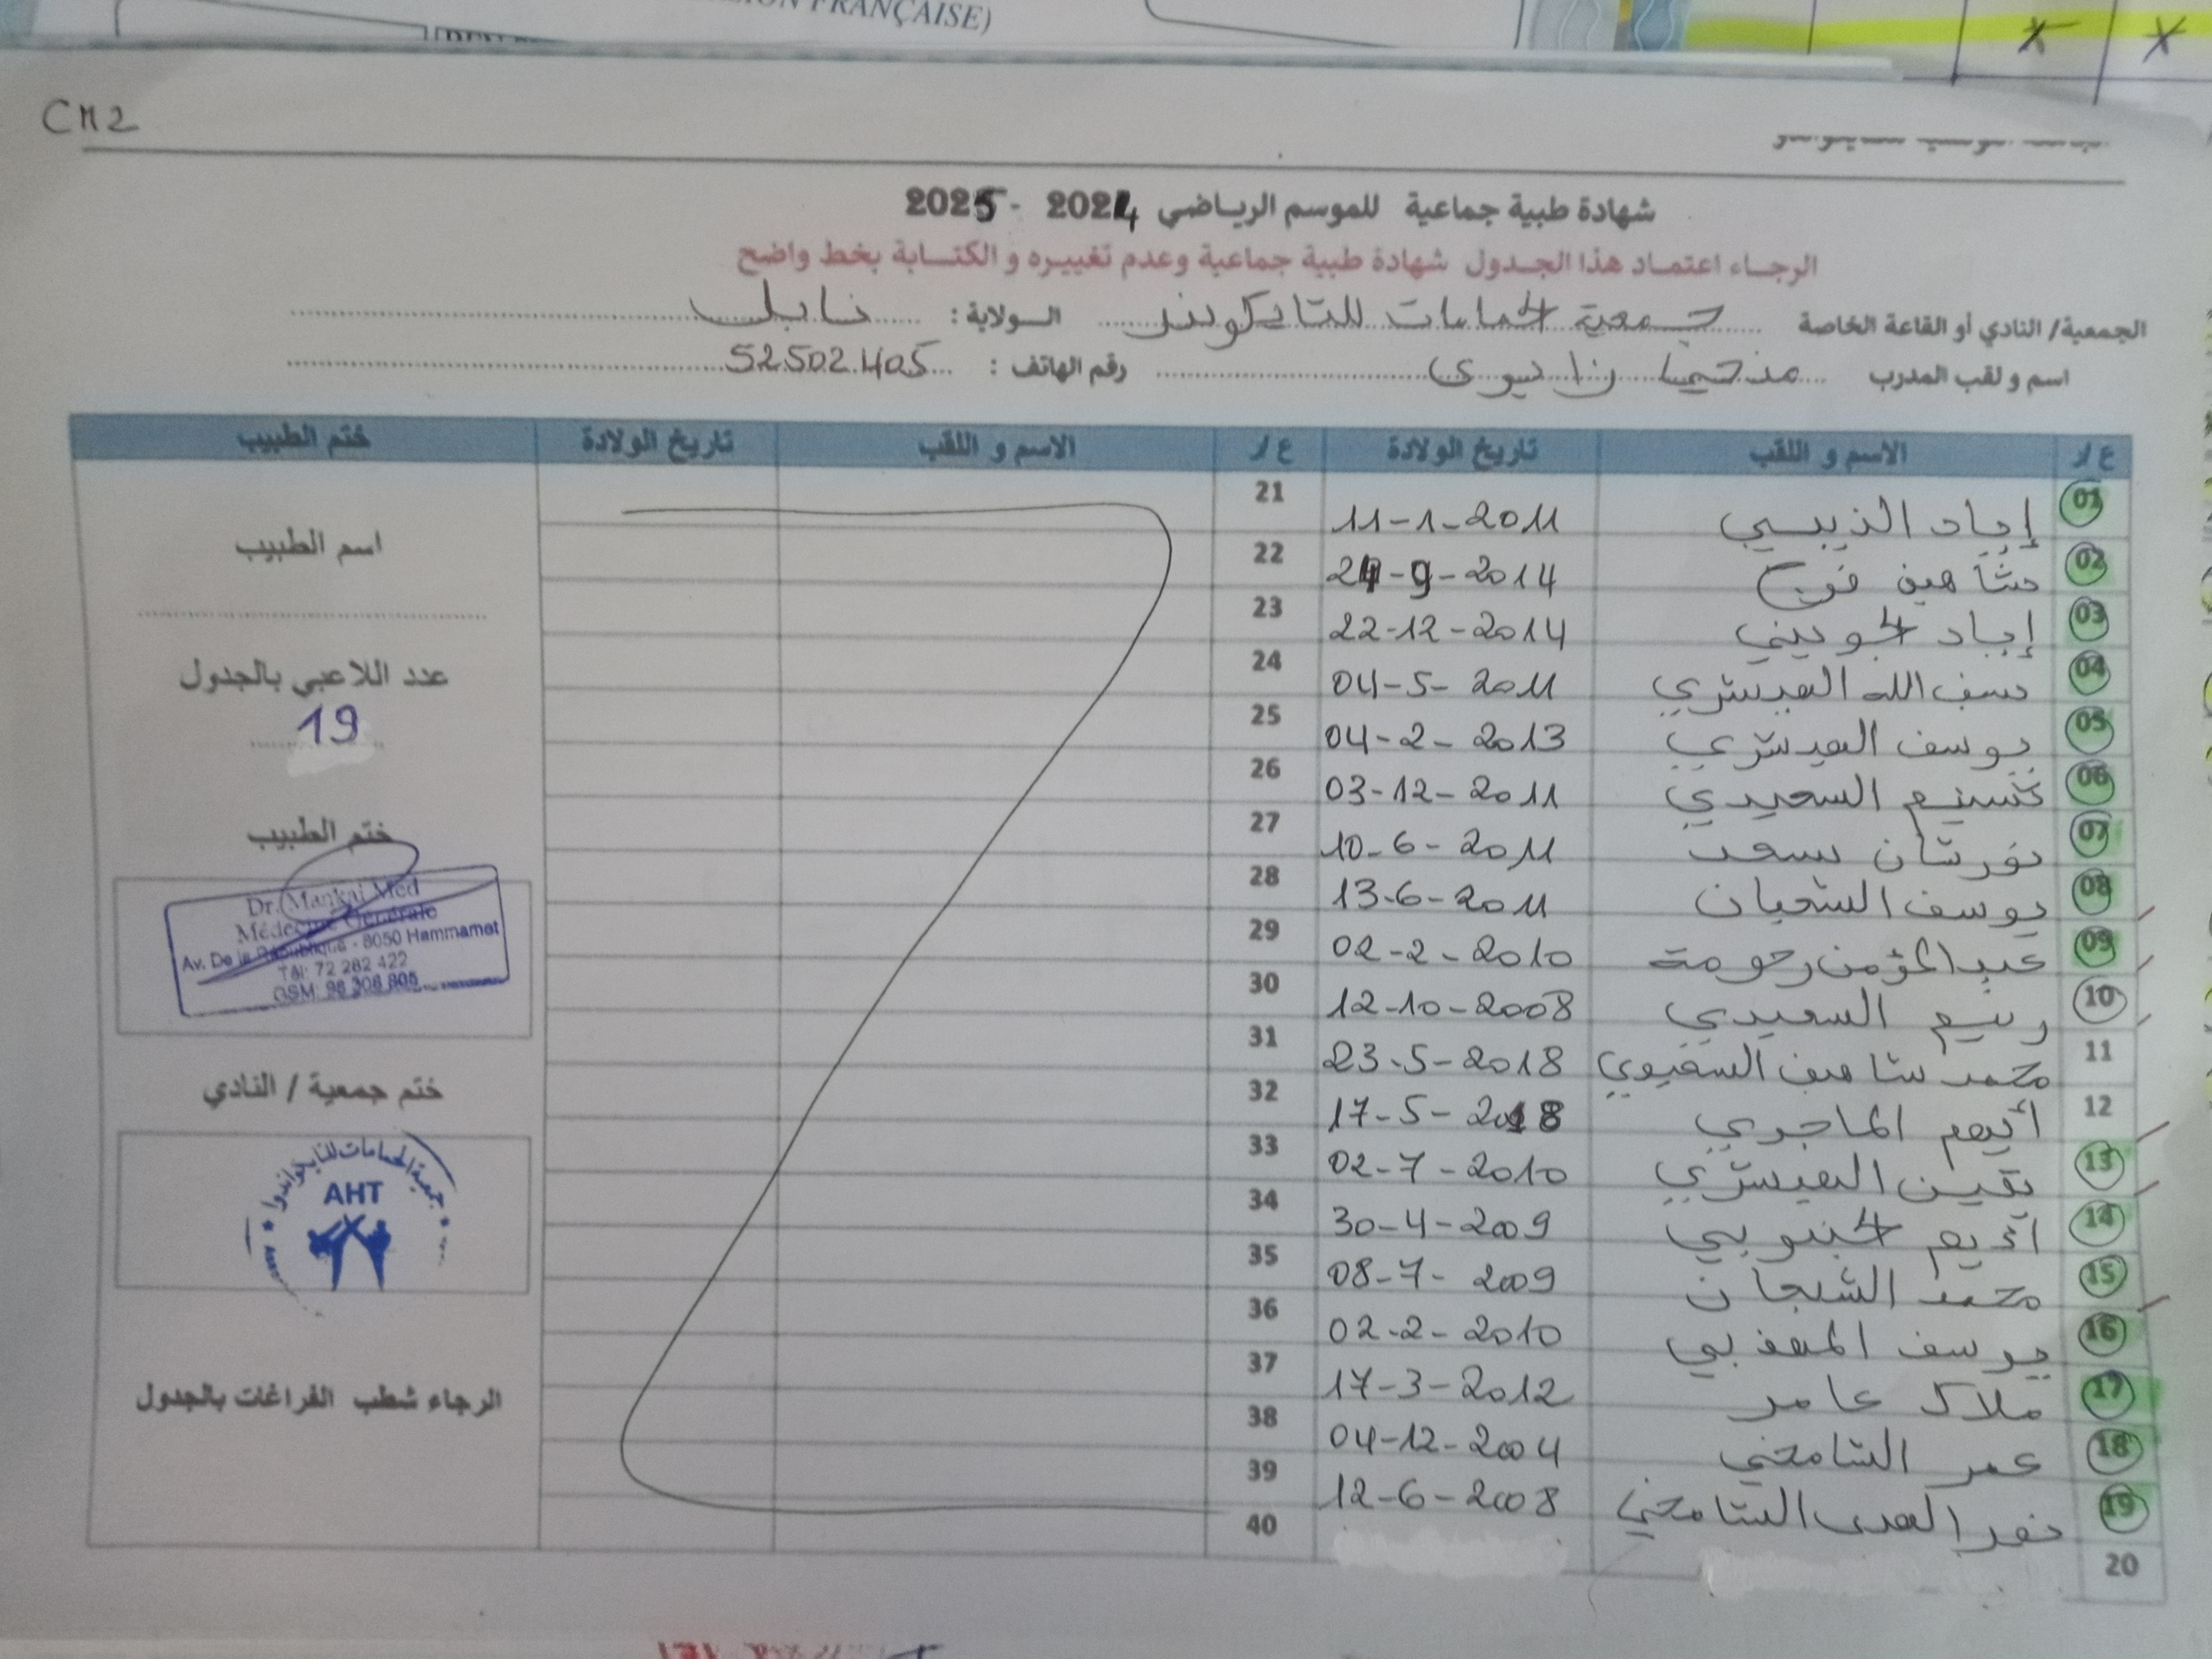 CM2
شهادة طبية جماعية للموسم الرياضي 2024 - 2025
الرجاء اعتماد هذا الجدول شهادة طبية جماعية وعدم تغييره و الكتابة بخط واضح
الجمعية/ النادي أو القاعة الخاصة جمعية الحمامات للتايكوندو الولاية: نابل
اسم و لقب المدرب رقم الهاتف: 52502405
ع/ر الاسم و اللقب تاريخ الولادة ع/ر الاسم و اللقب تاريخ الولادة ختم الطبيب
01 إياد الذيبي 11-1-2011 21
02 شاهين 24-9-2014 22
03 إياد الجويني 22-12-2014 23
04 سيف الله العيشري 04-5-2011 24
05 يوسف العيشري 04-2-2013 25
06 تسنيم السعيدي 03-12-2011 26
07 نورشان سعد 10-6-2011 27
08 يوسف الشعبان 13-6-2011 28
09 عبد المؤمن رحومة 02-2-2010 29
10 ريم السعيدي 12-10-2008 30
11 محمد شاهين السفيوي 23-5-2018 31
12 أيهم الماجري 17-5-2018 32
13 يقين العيشري 02-7-2010 33
14 الجنوبي 30-4-2009 34
15 محمد الشعبان 08-7-2009 35
16 يوسف المهذبي 02-2-2010 36
17 ملاك عامر 17-3-2012 37
18 عمر الشامخي 04-12-2004 38
19 نور الهدى الشامخي 12-6-2008 39
20 40
اسم الطبيب
عدد اللاعبي بالجدول
19
ختم الطبيب
Dr. Mankai Med
Médecine Générale
Av. De la République - 8050 Hammamet
Tél: 72 282 422
GSM: 98 308 805
ختم جمعية / النادي
جمعية الحمامات للتايكواندوا
AHT
الرجاء شطب الفراغات بالجدول